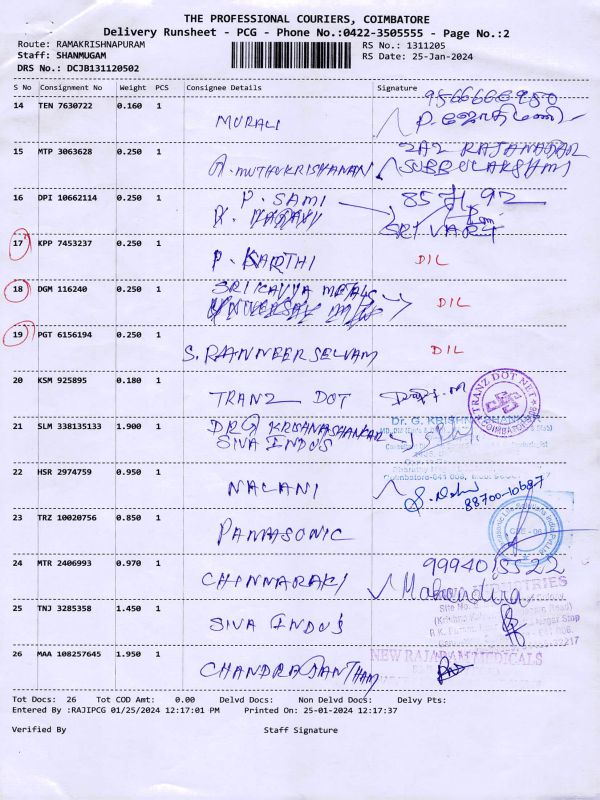 THE PROFESSIONAL COURIERS, COIMBATORE
Delivery Runsheet - PCG - Phone No.:0422-3505555 - Page No.:2
Route: RAMAKRISHNAPURAM
RS No.: 1311205
Staff: SHANMUGAM
RS Date: 25-Jan-2024
DRS No.: DCJB131120502
S No Consignment No Weight PCS Consignee Details Signature
14 TEN 7630722 0.160 1
MURALI
15 MTP 3063628 0.250 1
A. MUTHUKRISHANAN
SUBBULAKSHMI
16 DPI 10662114 0.250 1
P. SAMI
SRI VARI
17 KPP 7453237 0.250 1
P. KARTHI DIL
18 DGM 116240 0.250 1
SRI KAVYA METALS
DIL
19 PGT 6156194 0.250 1
S. PANNEERSELVAM DIL
20 KSM 925895 0.180 1
TRANZ DOT
TRANZ DOT NET
COIMBATORE
21 SLM 338135133 1.900 1
DR G KRISHNASHANKAR
SIVA INDUS
Dr. G. KRISHN
22 HSR 2974759 0.950 1
NALANI
88700-10687
23 TRZ 10020756 0.850 1
PANASONIC
24 MTR 2406993 0.970 1
CHINNARAKI
Mahendira
25 TNJ 3285358 1.450 1
SIVA INDUS
26 MAA 108257645 1.950 1
CHANDRA SANTHAM
NEW RAJARAM MEDICALS
Tot Docs: 26 Tot COD Amt: 0.00 Delvd Docs: Non Delvd Docs: Delvy Pts:
Entered By :RAJIPCG 01/25/2024 12:17:01 PM Printed On: 25-01-2024 12:17:37
Verified By Staff Signature